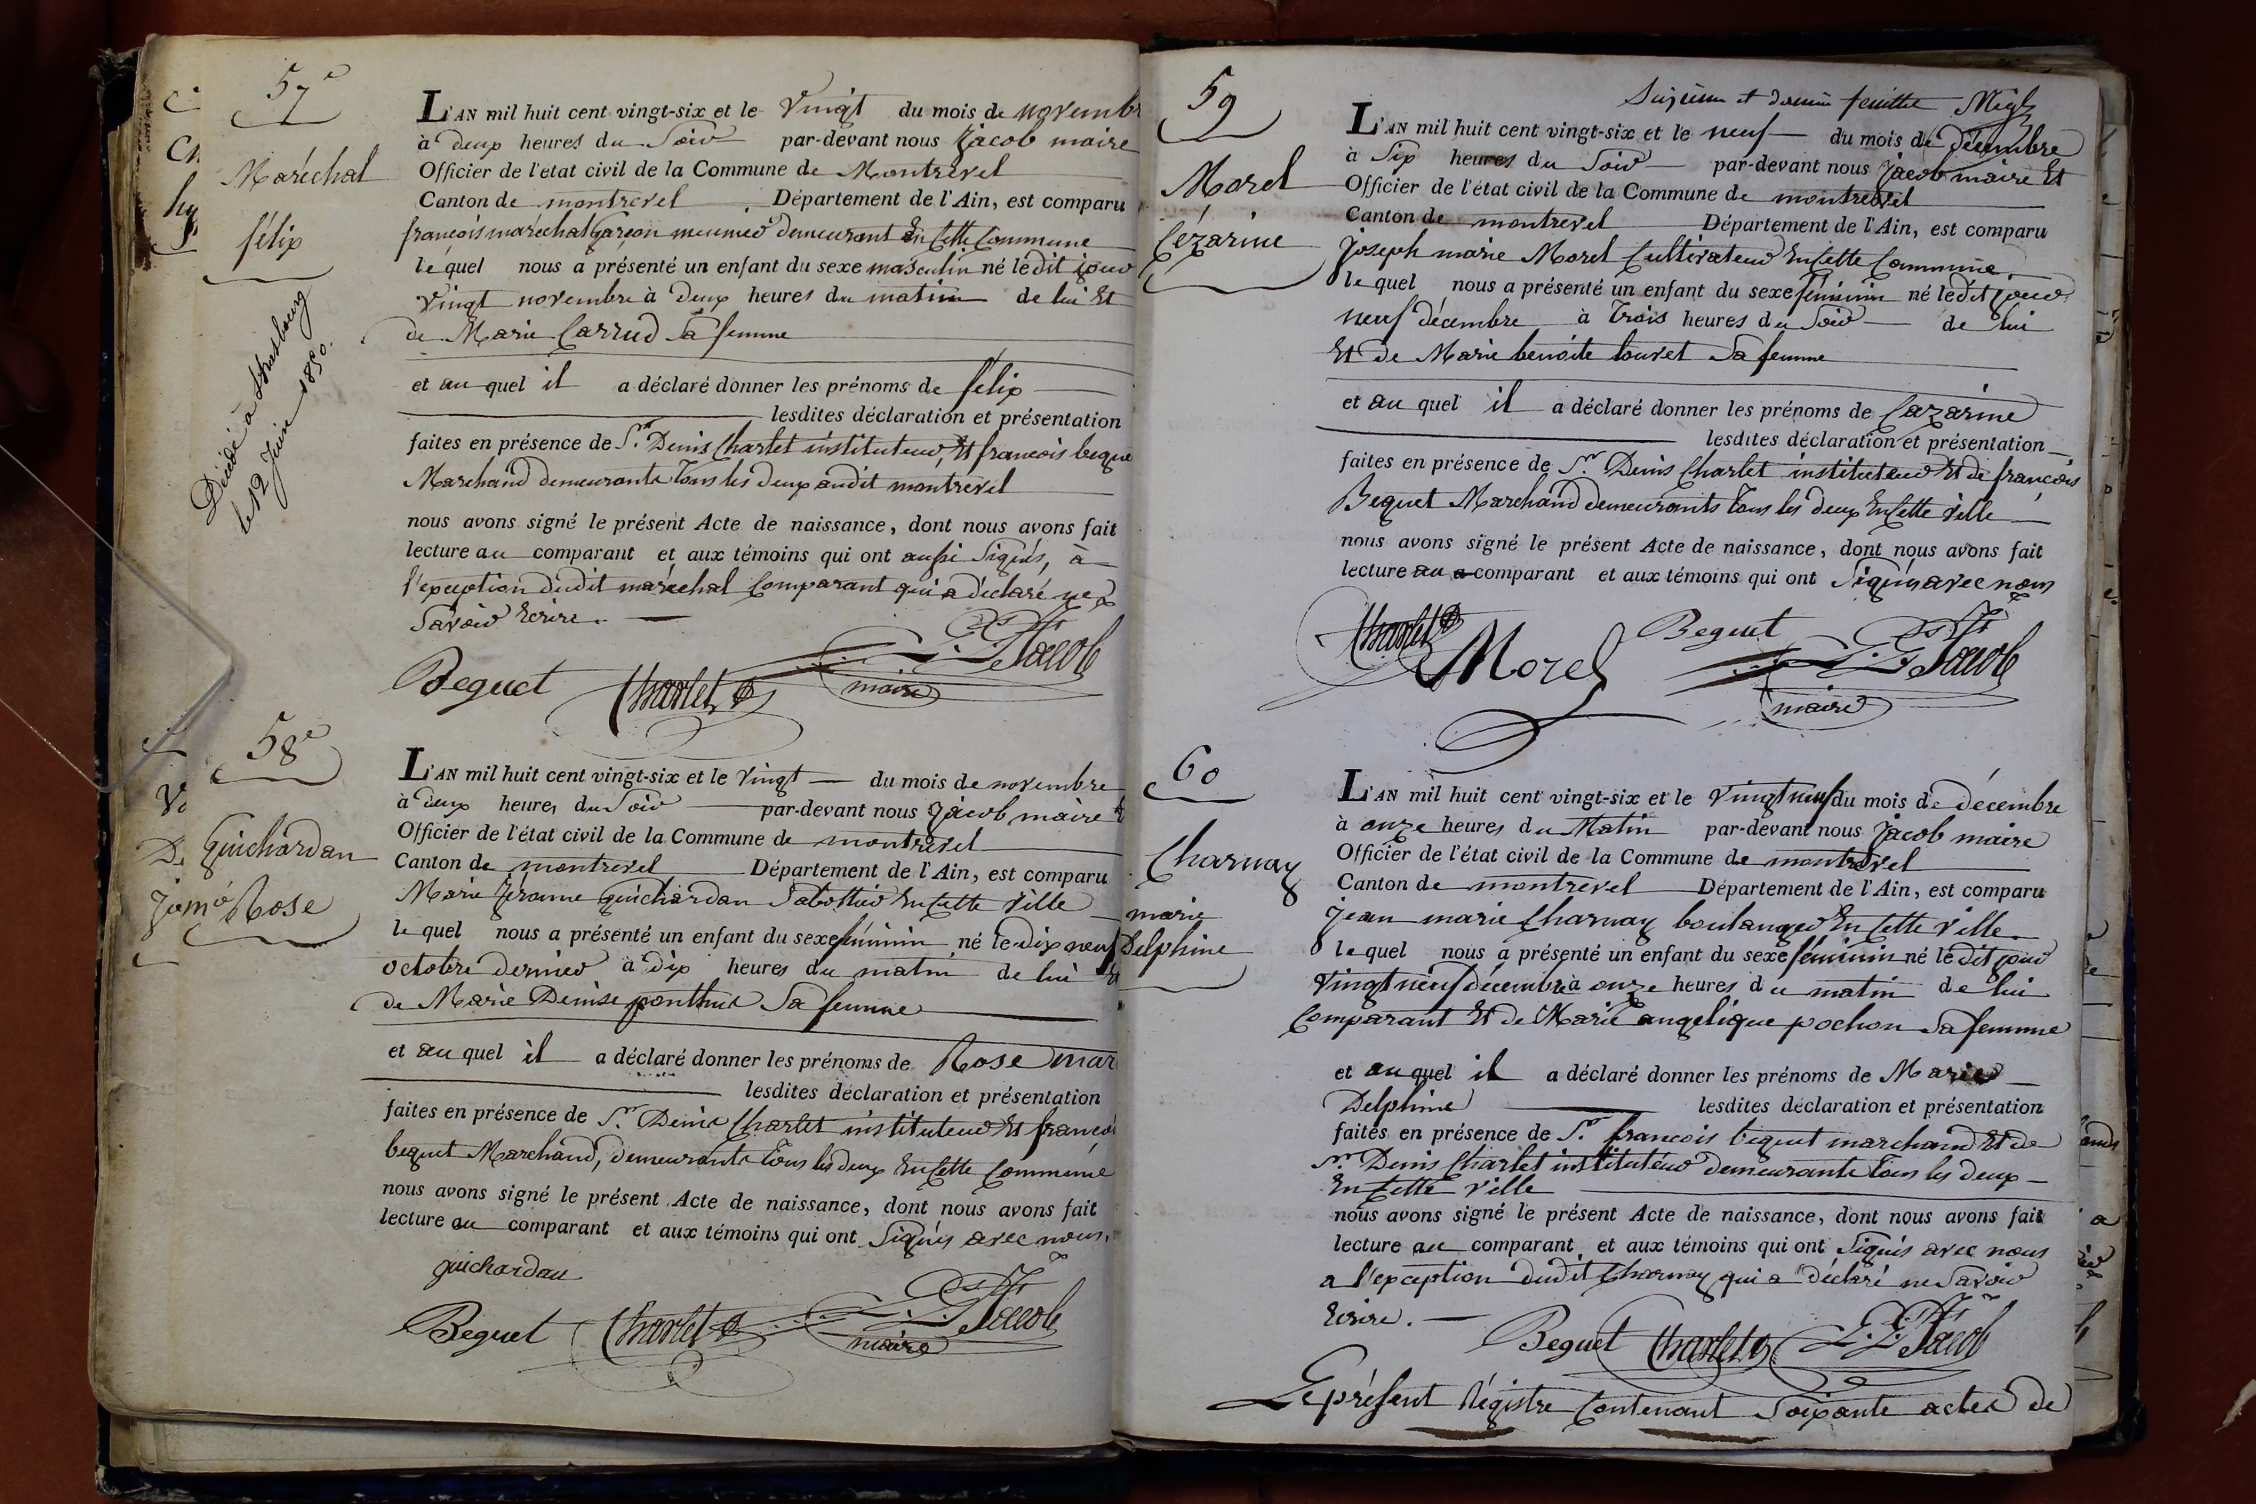 57e
Maréchal
félix
Décédé à Strasbourg
le 12 Juin 1850.
L'AN mil huit cent vingt-six et le Vingt du mois de novembr
à deux heures du Soir par-devant nous Jacob maire
Officier de l'etat civil de la Commune de Montrevel
Canton de montrevel Département de l'Ain, est comparu
françois maréchal garçon meunier demeurant En Cette Commune
le quel nous a présenté un enfant du sexe masculin né le dit jour
Vingt novembre à Deux heures du matin de lui Et
de Marie Carrud Sa femme
et au quel il a déclaré donner les prénoms de félix
lesdites déclaration et présentation
faites en présence de Sr. Denis Charlet instituteur, Et francois bequ
Marchand demeurants Tous les deux audit montrevel
nous avons signé le présent Acte de naissance, dont nous avons fait
lecture au comparant et aux témoins qui ont aussi Signés, à
l'exception dudit maréchal Comparant qui a déclaré ne
Savoir Ecrire.
Beguet Charlet Jacob
maire
58e
Guichardan
Rose
L'AN mil huit cent vingt-six et le Vingt du mois de novembre
à deux heures du Soir par-devant nous Jacob maire E
Officier de l'état civil de la Commune de montrevel
Canton de montrevel Département de l'Ain, est comparu
Marie Jérome Guichardan Sabottier En Cette Ville
le quel nous a présenté un enfant du sexe féminin né le dix neuf
octobre dernier à dix heures du matin de lui Et
de Marie Denise ponthus Sa femme
et au quel il a déclaré donner les prénoms de Rose mar
lesdites déclaration et présentation
faites en présence de Sr. Denis Charlet instituteur Et françoi
bequet Marchand, demeurants Tous les deux En Cette Commune
nous avons signé le présent Acte de naissance, dont nous avons fait
lecture au comparant et aux témoins qui ont Signés avec nous.
guichardan
Beguet Charlet Jacob
maire
Sixième et dernier feuillet
59
Morel
Cézarine
L'AN mil huit cent vingt-six et le neuf du mois de Décembre
à Six heures du Soir par-devant nous Jacob maire Et
Officier de l'état civil de la Commune de montrevel
Canton de montrevel Département de l'Ain, est comparu
Joseph marie Morel Cultivateur En Cette Commune
le quel nous a présenté un enfant du sexe féminin né le dit jour
neuf décembre à Trois heures du Soir de lui
Et de Marie benoite louvet Sa femme
et au quel il a déclaré donner les prénoms de Cazarine
lesdites déclaration et présentation
faites en présence de Sr. Denis Charlet instituteur Et de françois
Bequet Marchand demeurants Tous les deux En Cette Ville
nous avons signé le présent Acte de naissance, dont nous avons fait
lecture au comparant et aux témoins qui ont Signés avec nous
Charlet Morel Beguet Jacob
maire
60
Charnay
marie
Delphine
L'AN mil huit cent vingt-six et le Vingt neuf du mois de décembre
à onze heures du Matin par-devant nous Jacob maire
Officier de l'état civil de la Commune de montrevel
Canton de montrevel Département de l'Ain, est comparu
Jean marie Charnay boulanger En Cette Ville
le quel nous a présenté un enfant du sexe féminin né le dit jour
Vingt neuf décembre à onze heures du matin de lui
Comparant Et de Marie angélique pochon Sa femme
et au quel il a déclaré donner les prénoms de Marie
Delphine lesdites déclaration et présentation
faites en présence de Sr. francois bequet marchand Et de
Sr. Denis Charlet instituteur demeurants Tous les deux
En Cette Ville
nous avons signé le présent Acte de naissance, dont nous avons fait
lecture au comparant et aux témoins qui ont Signés avec nous
a l'exception dudit Charnay qui a déclaré ne Savoir
Ecrire.
Beguet Charlet Jacob
Le présent Régistre Contenant Soixante actes de